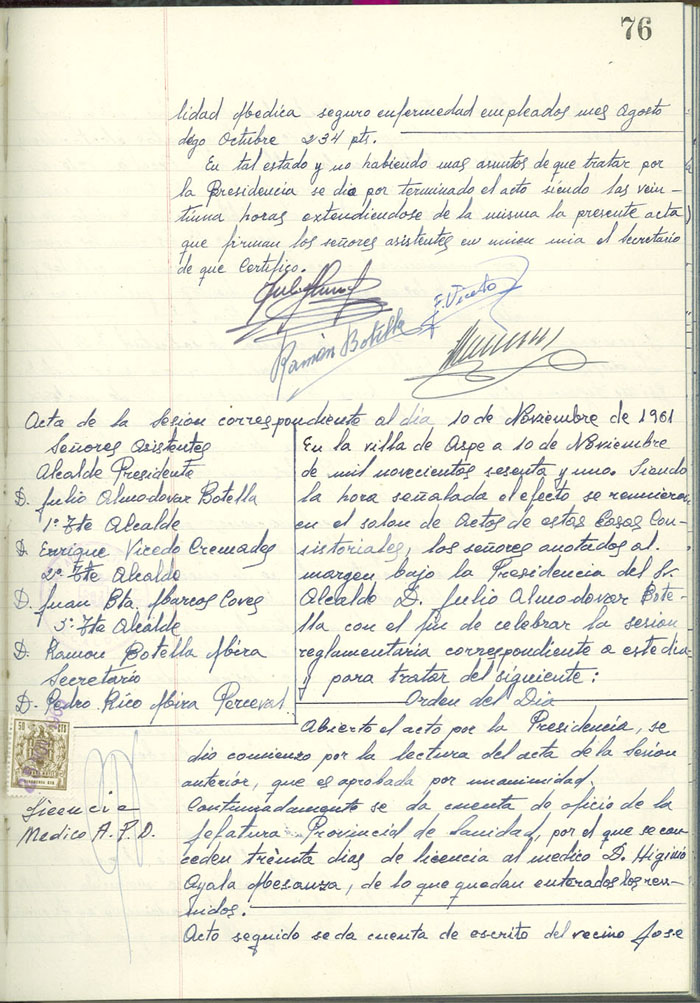 76
lidad Medica seguro enfermedad empleados mes Agosto
dego Octubre 234 pts.
En tal estado y no habiendo mas asuntos de que tratar por
la Presidencia se dio por terminado el acto siendo las vein-
tiuna horas extendiendose de la misma la presente acta
que firman los señores asistentes en union mia el Secretario
de que Certifico.
E. Vicedo
Ramón Botella
Acta de la Sesion correspondiente al dia 10 de Noviembre de 1961
Señores Asistentes
Alcalde Presidente
D. Julio Almodovar Botella
1º Tte Alcalde
D. Enrique Vicedo Cremades
2º Tte Alcalde
D. Juan Bta. Marcos Coves
3º Tte Alcalde
D. Ramon Botella Mira
Secretario
D. Pedro Rico Mira Perceval
50 CTS
Licencia
Medico A.P.D.
En la villa de Aspe a 10 de Noviembre
de mil novecientos sesenta y uno. Siendo
la hora señalada el efecto se reunieron
en el salon de Actos de estas Casas Con-
sistoriales, los señores anotados al
margen bajo la Presidencia del Sr.
Alcalde D. Julio Almodovar Bote-
lla con el fin de celebrar la sesion
reglamentaria correspondiente a este dia
y para tratar del siguiente:
Orden del Dia
Abierto el acto por la Presidencia, se
dio comienzo por la lectura del acta de la Sesion
anterior, que es aprobada por unanimidad.
Continuadamente se da cuenta de oficio de la
Jefatura Provincial de Sanidad, por el que se con-
ceden treinta dias de licencia al medico D. Higinio
Ayala Mesanza, de lo que quedan enterados los reu-
nidos.
Acto seguido se da cuenta de escrito del vecino Jose